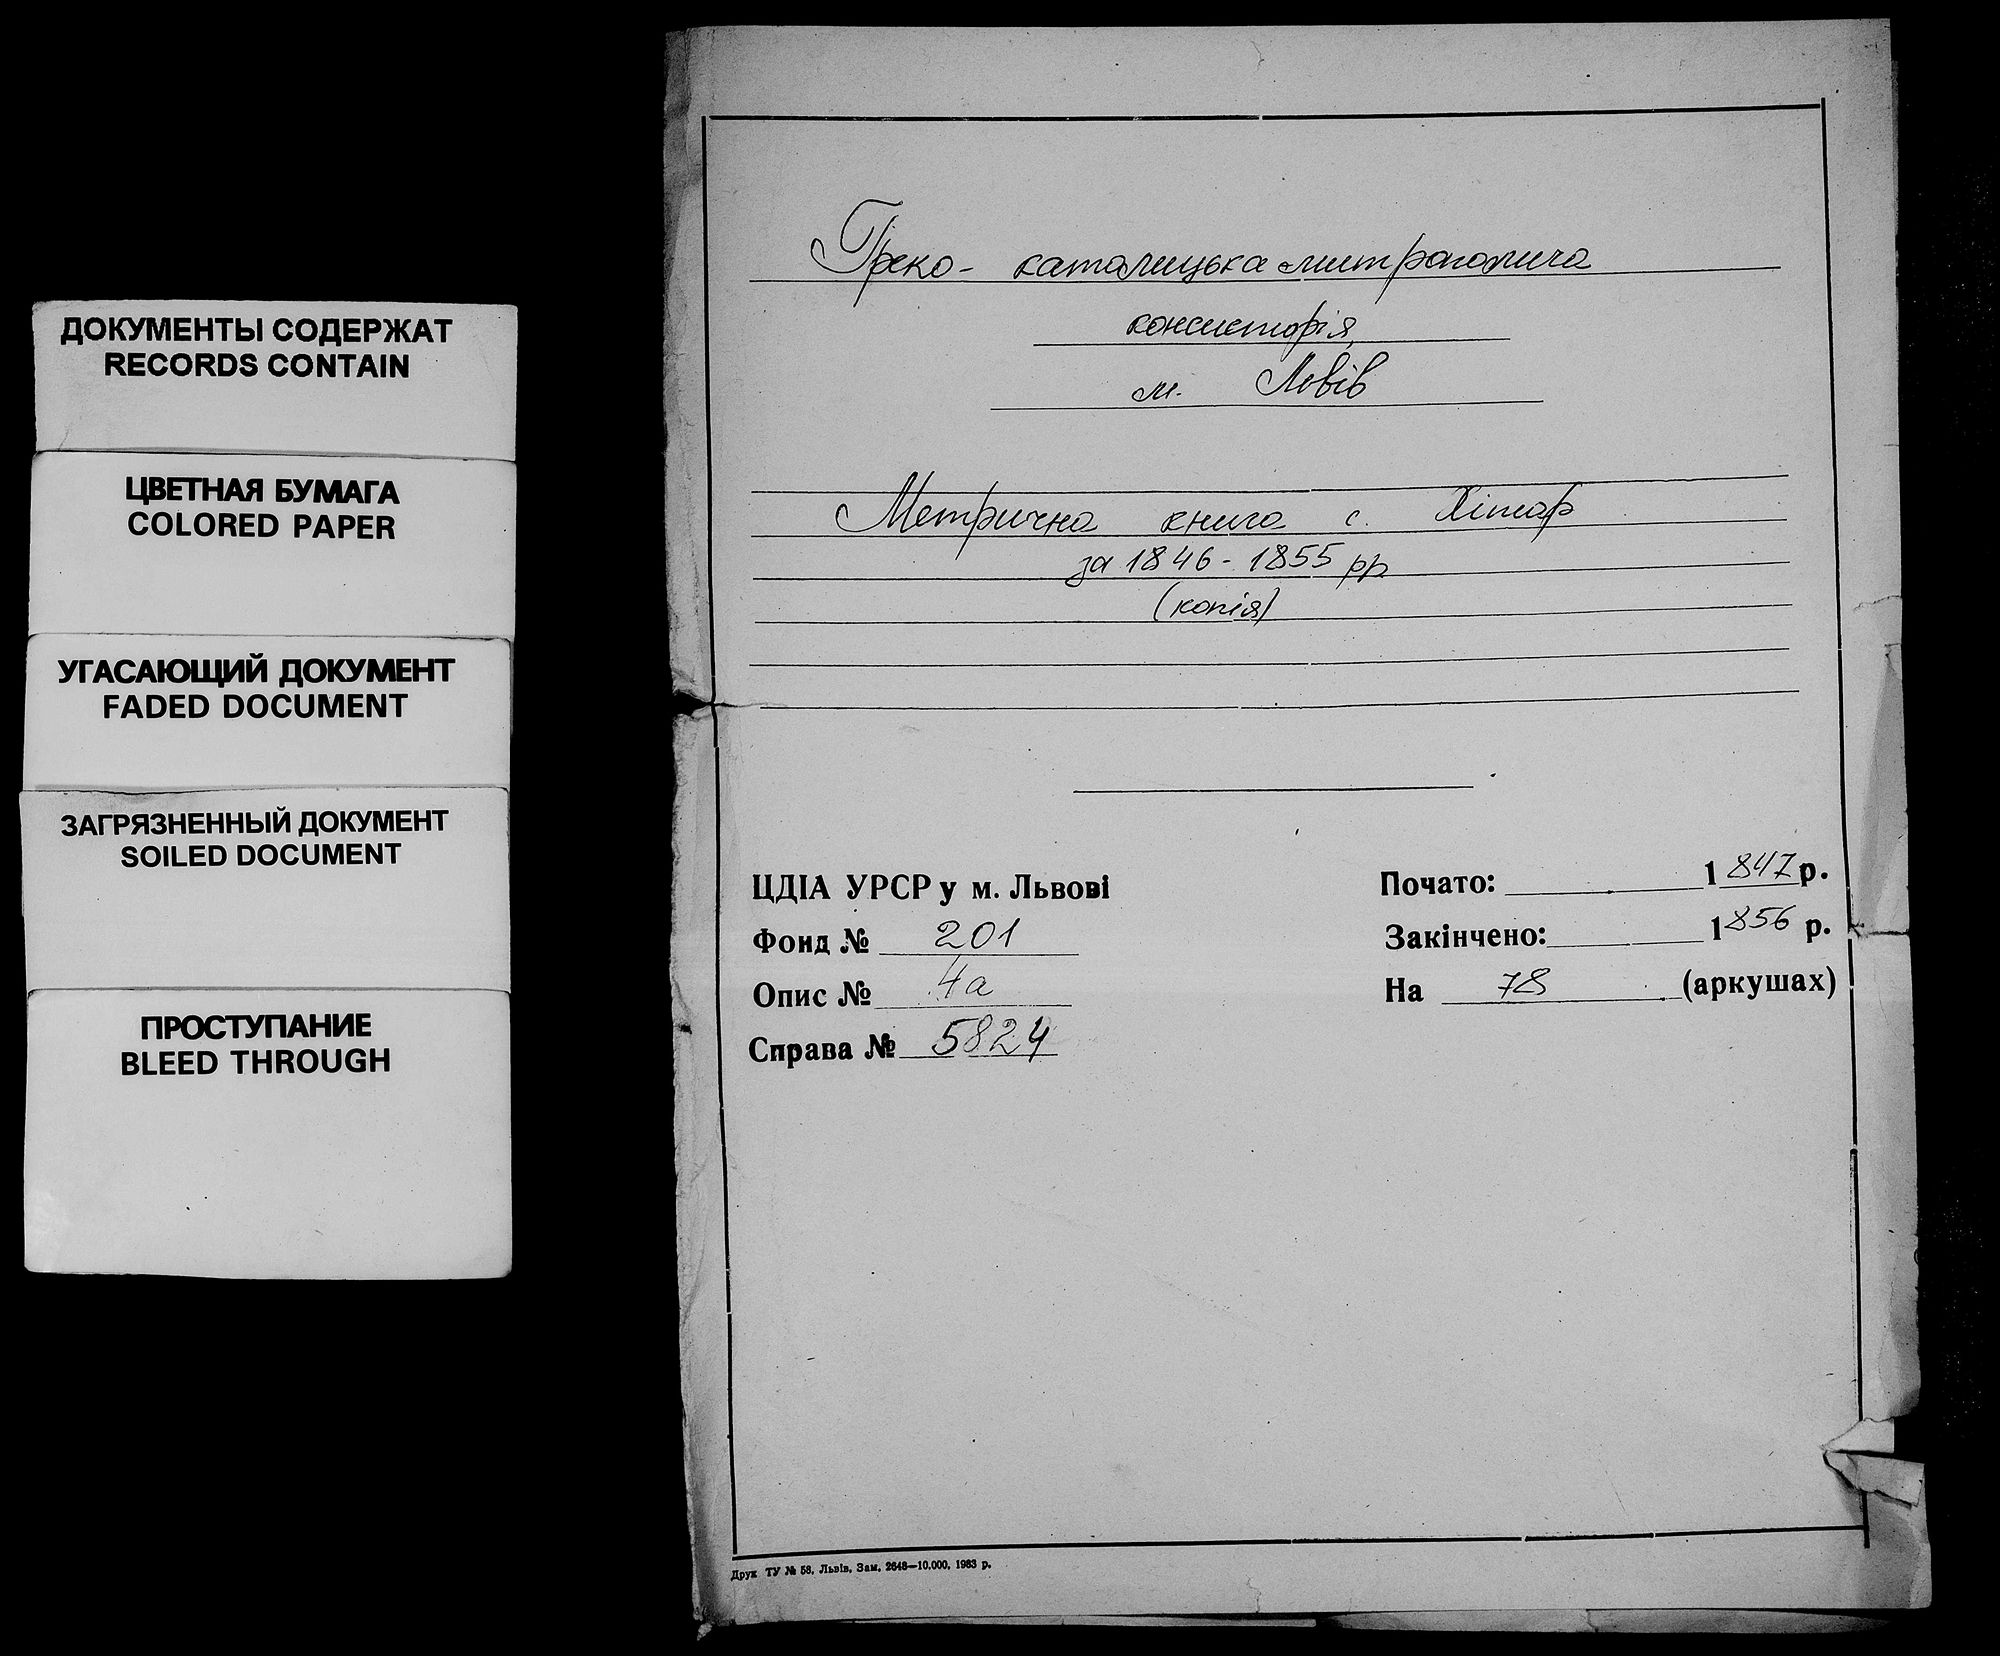 ДОКУМЕНТЫ СОДЕРЖАТ
RECORDS CONTAIN
ЦВЕТНАЯ БУМАГА
COLORED PAPER
УГАСАЮЩИЙ ДОКУМЕНТ
FADED DOCUMENT
ЗАГРЯЗНЕННЫЙ ДОКУМЕНТ
SOILED DOCUMENT
ПРОСТУПАНИЕ
BLEED THROUGH
Греко-католицька митрополича
консисторія,
м. Львів
Метрична книга с. Хітар
за 1846-1855 рр
(копія)
ЦДІА УРСР у м. Львові
Фонд № 201
Опис № 4а
Справа № 5824
Почато: 1847 р.
Закінчено: 1856 р.
На 78 (аркушах)
Друк ТУ № 58, Львів, Зам. 2648—10.000, 1983 р.